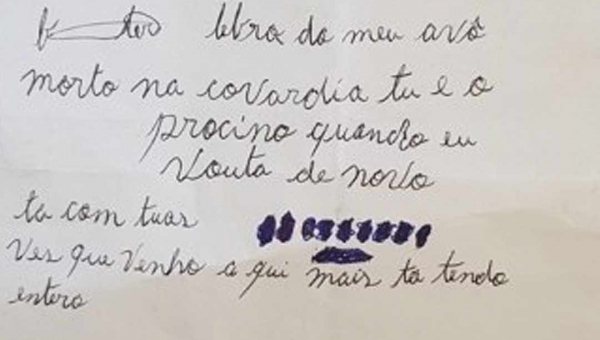 lebra do meu avô
morto na covardia tu e o
procino quando eu
vouta de novo
ta com tuas
ves que venho a qui mais ta tendo
entero